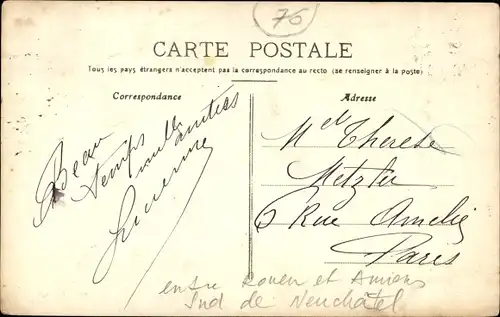 76
CARTE POSTALE
Tous les pays étrangers n'acceptent pas la correspondance au recto (se renseigner à la poste)
Correspondance
Beau
temps
mille amitiés
Adresse
Melle Therese
Metzler
6 Rue Amelie
Paris
entre Rouen et Amiens
Sud de Neuchâtel